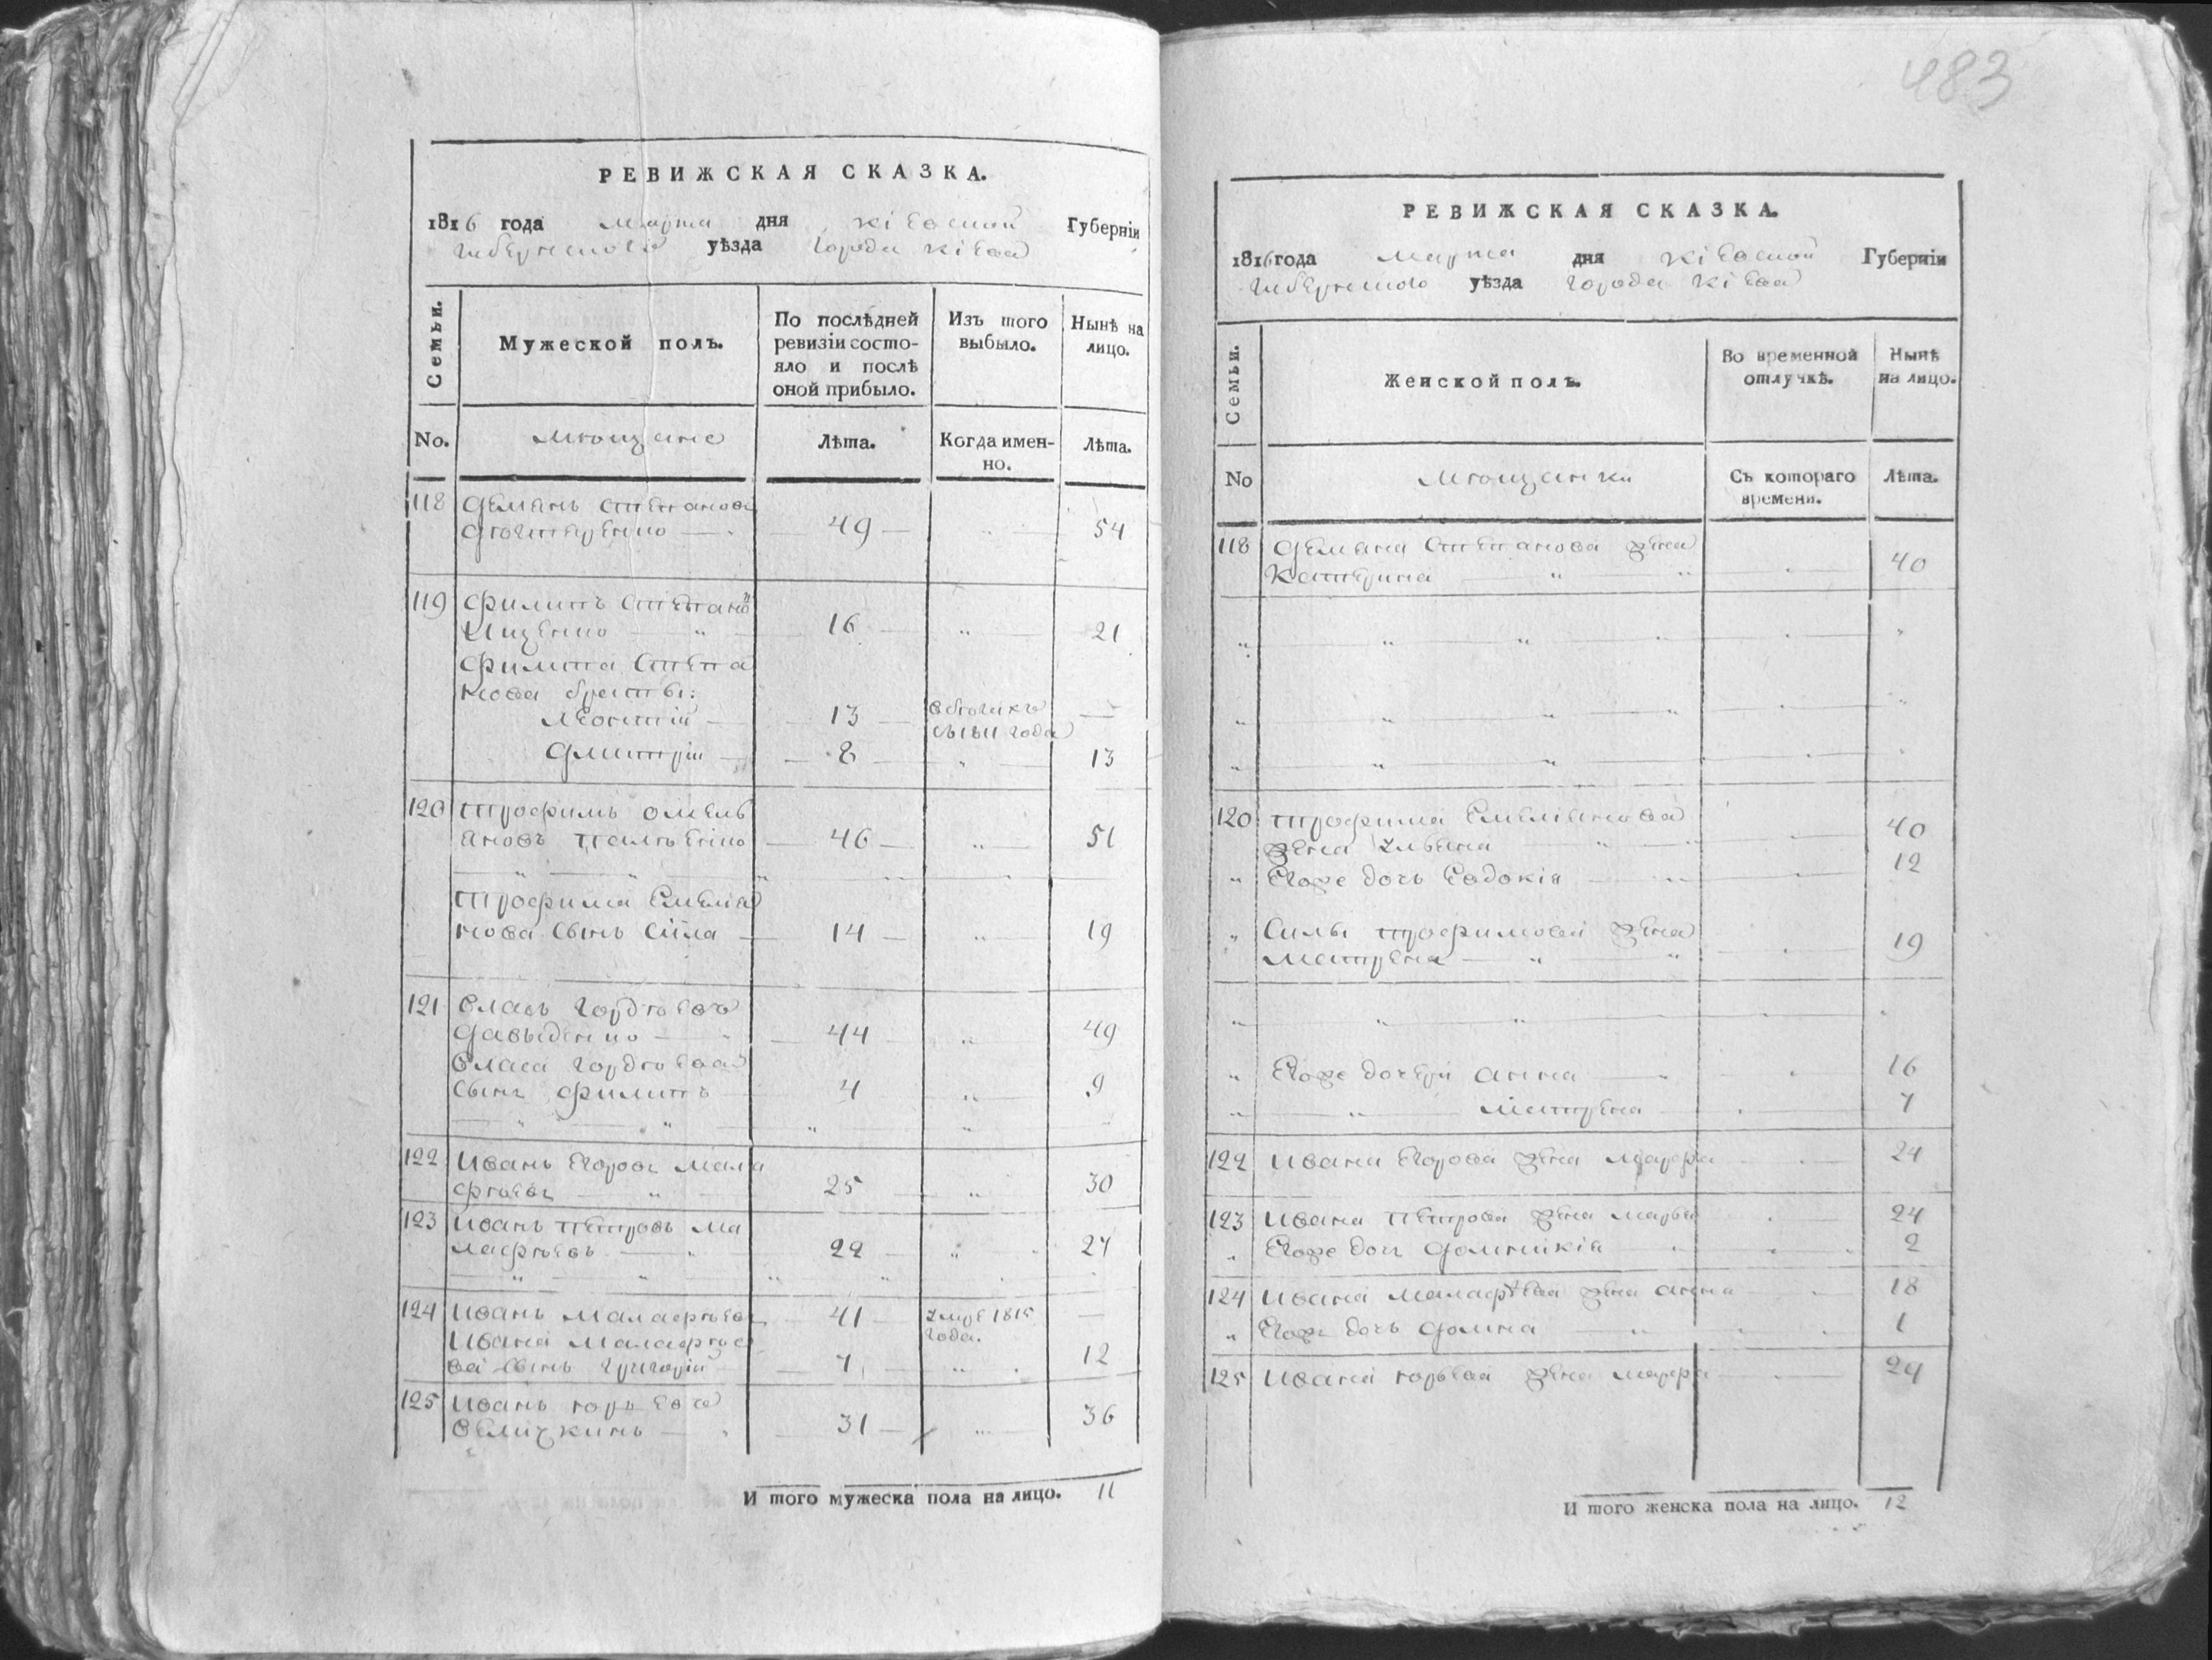 РЕВИЖСКАЯ СКАЗКА.
1816 года Марта дня Кіевской Губерніи
Губернского уѣзда города Кіева
Семьи.
Мужеской полъ.
По послѣдней ревизіи состо-
яло и послѣ
оной прибыло.
Изъ того
выбыло.
Нынѣ на
лицо.
No.
мѣщане
Лѣта.
Когда имен-
но.
Лѣта.
118 Демянъ Степановъ
Дѣхтяренко 49 54
119 Филипъ Степано
Ищенко 16 21
Филипа Степа
нова браты:
Леонтій 13 въ бѣгахъ
съ 1811 года
Дмитрій 8 13
120 Трофимъ Омель
яновъ 46 51
Трофима Емелія
нова сынъ Сила 14 19
121 Власъ Гордѣевъ
Давыденко 44 49
Власа Гордѣева
сынъ Филипъ 4 9
122 Иванъ Егоровъ Мала
фѣевъ 25 30
123 Иванъ Петровъ Ма
лафѣевъ 22 27
124 Иванъ Малафѣевъ 41 умре 1815
года.
Ивана Малафѣе
ва сынъ Григорій 7 12
125 Иванъ Юрьевъ
Величкинъ 31 36
И того мужеска пола на лицо. 11
483
РЕВИЖСКАЯ СКАЗКА.
1816 года Марта дня Кіевской Губерніи
Губернского уѣзда города Кіева
Семьи.
Женской полъ.
Во временной
отлучкѣ.
Нынѣ
на лицо.
No
мѣщанки
Съ котораго
времени.
Лѣта.
118 Демяна Степанова жена
Катерина 40
120 Трофима Емеліянова
жена Ульяна 40
Егоже дочь Евдокія 12
Силы Трофимова жена
Матрена 19
Егоже дочери Анна 16
Матрена 7
122 Ивана Егорова жена Марфа 24
123 Ивана Петрова жена Марья 24
Егоже дочь Домникія 2
124 Ивана Малафѣева жена Анна 18
Егоже дочь Домна 1
125 Ивана Юрьева жена Марфа 24
И того женска пола на лицо. 12